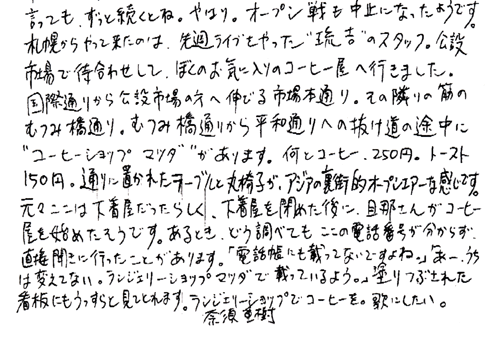 言っても、ずっと続くとね。やはり。オープン戦も中止になったようです。
札幌からやって来たのは、先週ライブをやった"琉吉"のスタッフ。公設
市場で待合わせして、ぼくのお気に入りのコーヒー屋へ行きました。
国際通りから公設市場の方へ伸びる市場本通り。その隣りの筋の
むつみ橋通り。むつみ橋通りから平和通りへの抜け道の途中に
"コーヒーショップ マツダ"があります。何とコーヒー、250円。トースト
150円。通りに置かれたテーブルと丸椅子が、アジアの裏街的オープンエアーな感じです。
元々ここは下着屋だったらしく、下着屋を閉めた後に、旦那さんがコーヒー
屋を始めたそうです。あるとき、どう調べてもここの電話番号が分からず、
直接聞きに行ったことがあります。「電話帳にも載ってないですよね。」「あー、うち
は変えてない。ランジェリーショップマツダで載っているよう。」塗りつぶされた
看板にもうっすらと見てとれます。ランジェリーショップでコーヒーを。歌にしたい。
奈須重樹